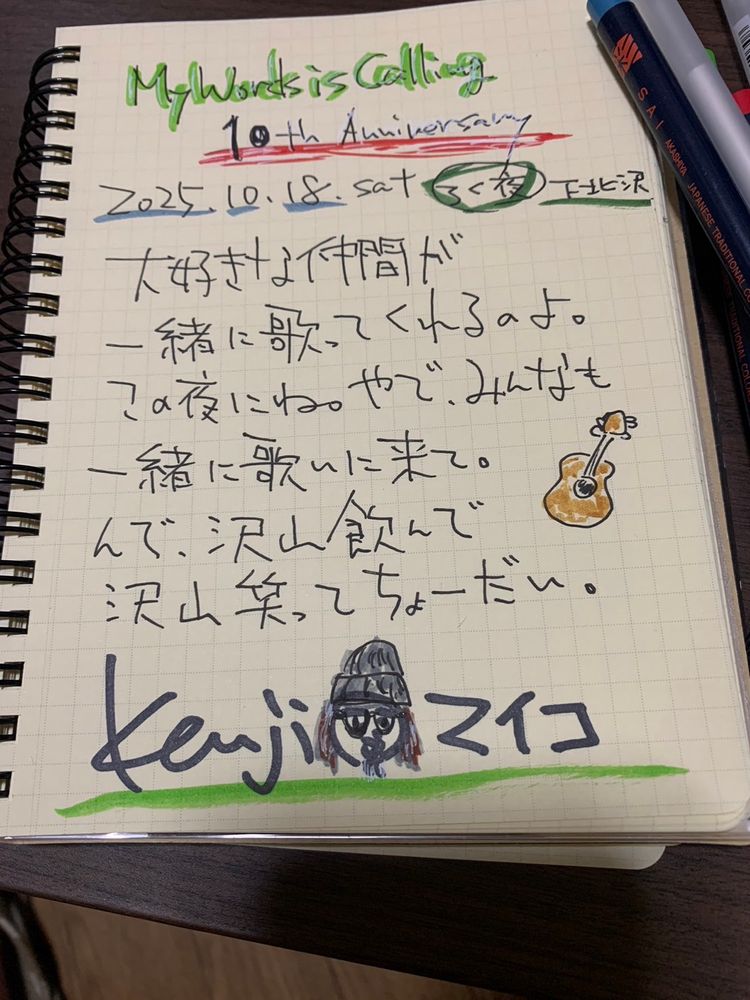 My Words is Calling
10th Anniversary
2025.10.18.sat ろく夜 下北沢
大好きな仲間が
一緒に歌ってくれるのよ。
この夜にね。やで、みんなも
一緒に歌いに来て。
んで、沢山飲んで
沢山笑ってちょーだい。
Kenjiマイコ
SAI AKASHIYA JAPANESE TRADITIONAL CO